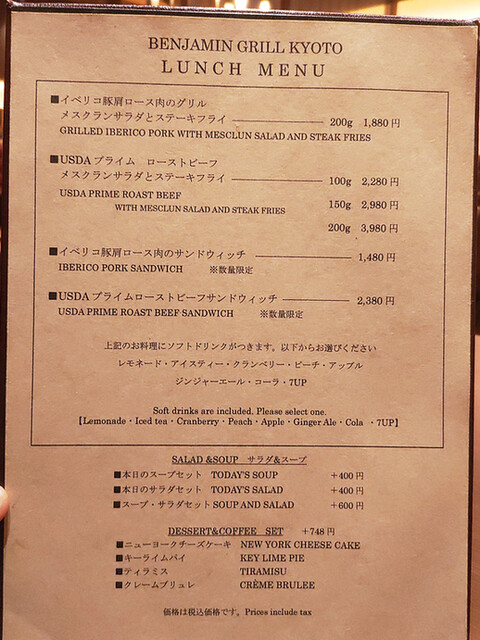 BENJAMIN GRILL KYOTO
LUNCH MENU
■イベリコ豚肩ロース肉のグリル
メスクランサラダとステーキフライ 200g 1,880円
GRILLED IBERICO PORK WITH MESCLUN SALAD AND STEAK FRIES
■USDAプライム ローストビーフ
メスクランサラダとステーキフライ 100g 2,280円
USDA PRIME ROAST BEEF 150g 2,980円
WITH MESCLUN SALAD AND STEAK FRIES
200g 3,980円
■イベリコ豚肩ロース肉のサンドウィッチ 1,480円
IBERICO PORK SANDWICH ※数量限定
■USDAプライムローストビーフサンドウィッチ 2,380円
USDA PRIME ROAST BEEF SANDWICH ※数量限定
上記のお料理にソフトドリンクがつきます。以下からお選びください
レモネード・アイスティー・クランベリー・ピーチ・アップル
ジンジャーエール・コーラ・7UP
Soft drinks are included. Please select one.
【Lemonade・Iced tea・Cranberry・Peach・Apple・Ginger Ale・Cola ・7UP】
SALAD &SOUP サラダ&スープ
■本日のスープセット TODAY'S SOUP +400円
■本日のサラダセット TODAY'S SALAD +400円
■スープ・サラダセット SOUP AND SALAD +600円
DESSERT&COFFEE SET +748円
■ニューヨークチーズケーキ NEW YORK CHEESE CAKE
■キーライムパイ KEY LIME PIE
■ティラミス TIRAMISU
■クレームブリュレ CRÈME BRULEE
価格は税込価格です。Prices include tax